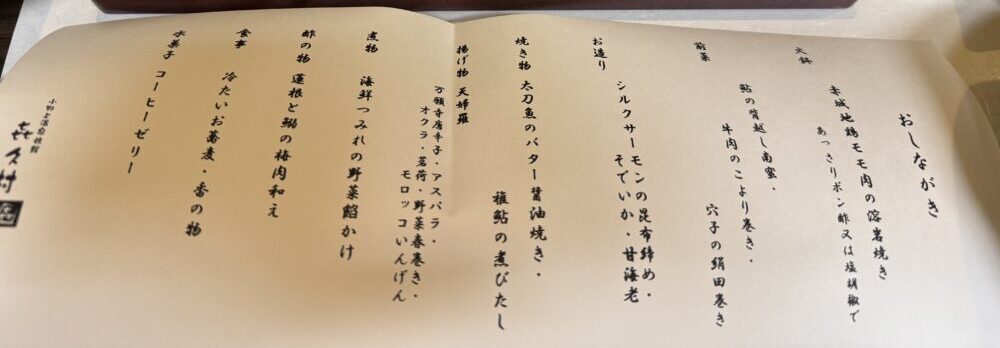 おしながき
大鉢
赤城地鶏モモ肉の溶岩焼き
あっさりポン酢又は塩胡椒で
前菜
鮎の背越し南蜜・
牛肉のこより巻き・
穴子の絹田巻き
お造り
シルクサーモンの昆布締め・
そでいか・甘海老
焼き物 太刀魚のバター醤油焼き・
稚鮎の煮びたし
揚げ物 天婦羅
万願寺唐辛子・アスパラ・
オクラ・茗荷・野菜春巻き・
モロッコいんげん
煮物 海鮮つみれの野菜餡かけ
酢の物 蓮根と鰯の梅肉和え
食事 冷たいお蕎麦・香の物
水菓子 コーヒーゼリー
小野上温泉旅館
喜久村